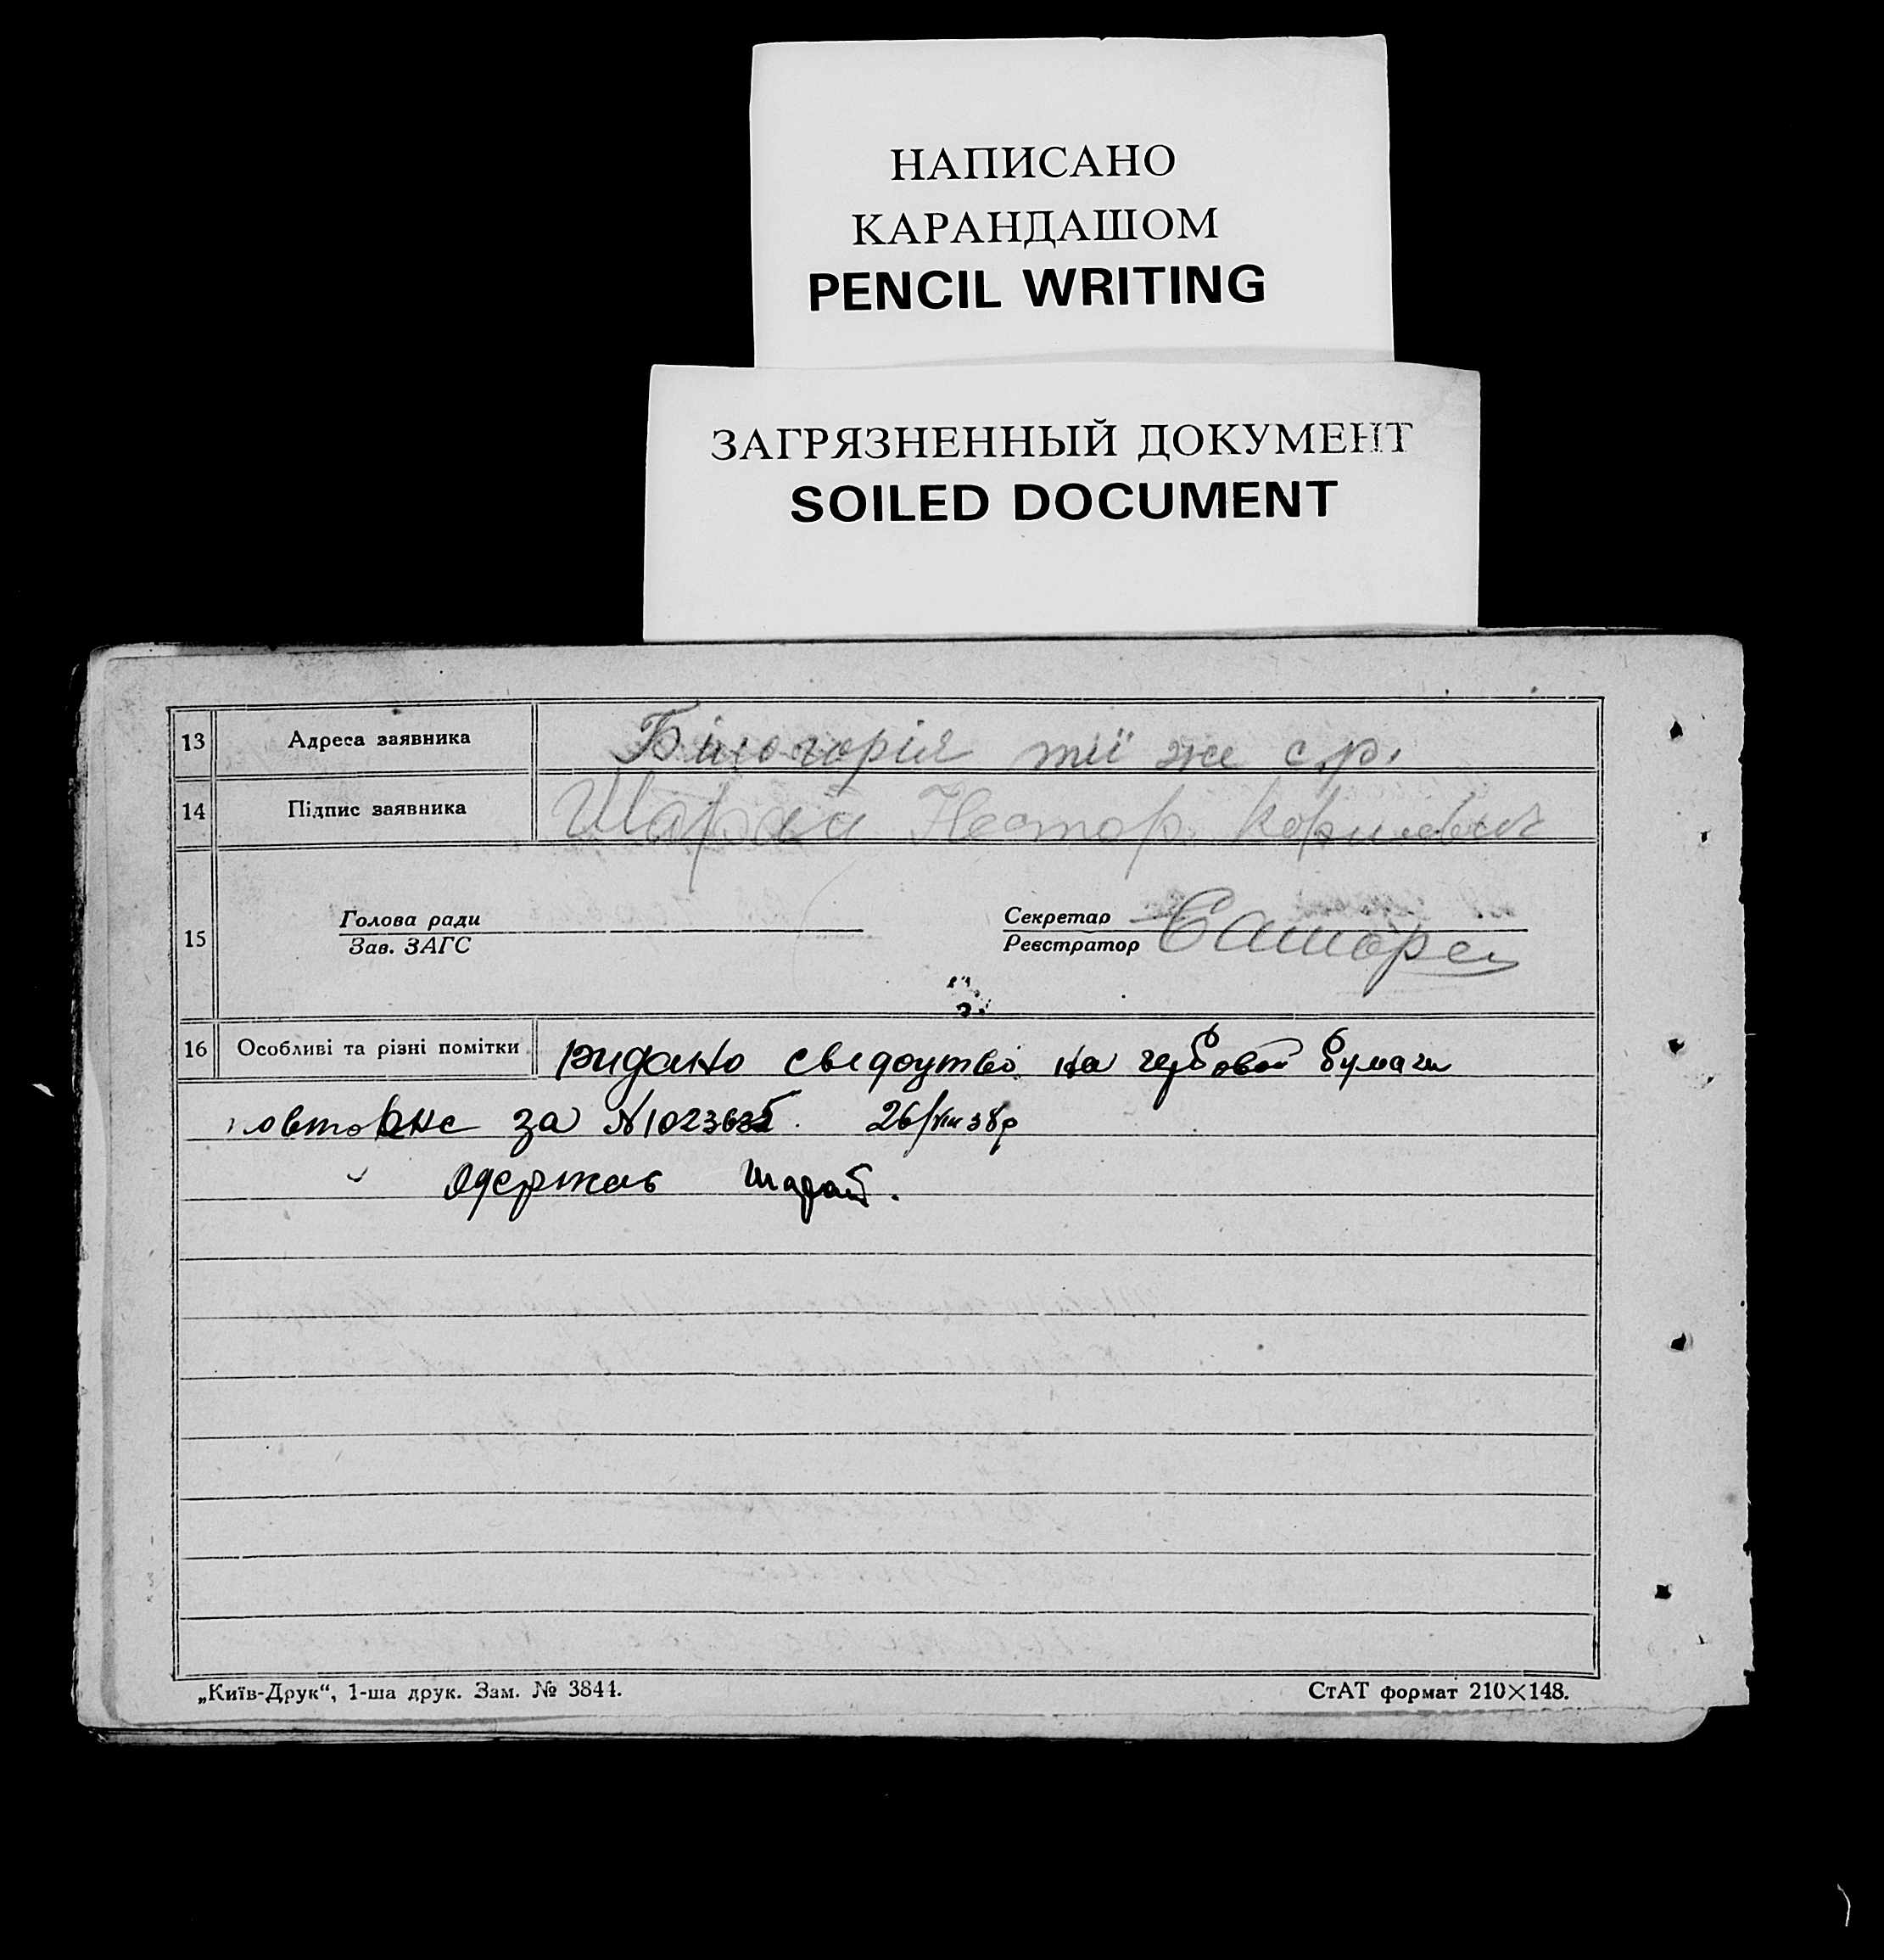 НАПИСАНО
КАРАНДАШОМ
PENCIL WRITING
ЗАГРЯЗНЕННЫЙ ДОКУМЕНТ
SOILED DOCUMENT
13 Адреса заявника Білогорія тії же с.р.
14 Підпис заявника Нестор
Голова ради Секретар
15
Зав. ЗАГС Реєстратор
16 Особливі та різні помітки видано свідоцтво на гербовой бумаги
повторне за N 26/VIII 38р
Одержав Шарай.
„Київ-Друк“, 1-ша друк. Зам. № 3844. СтАТ формат 210×148.